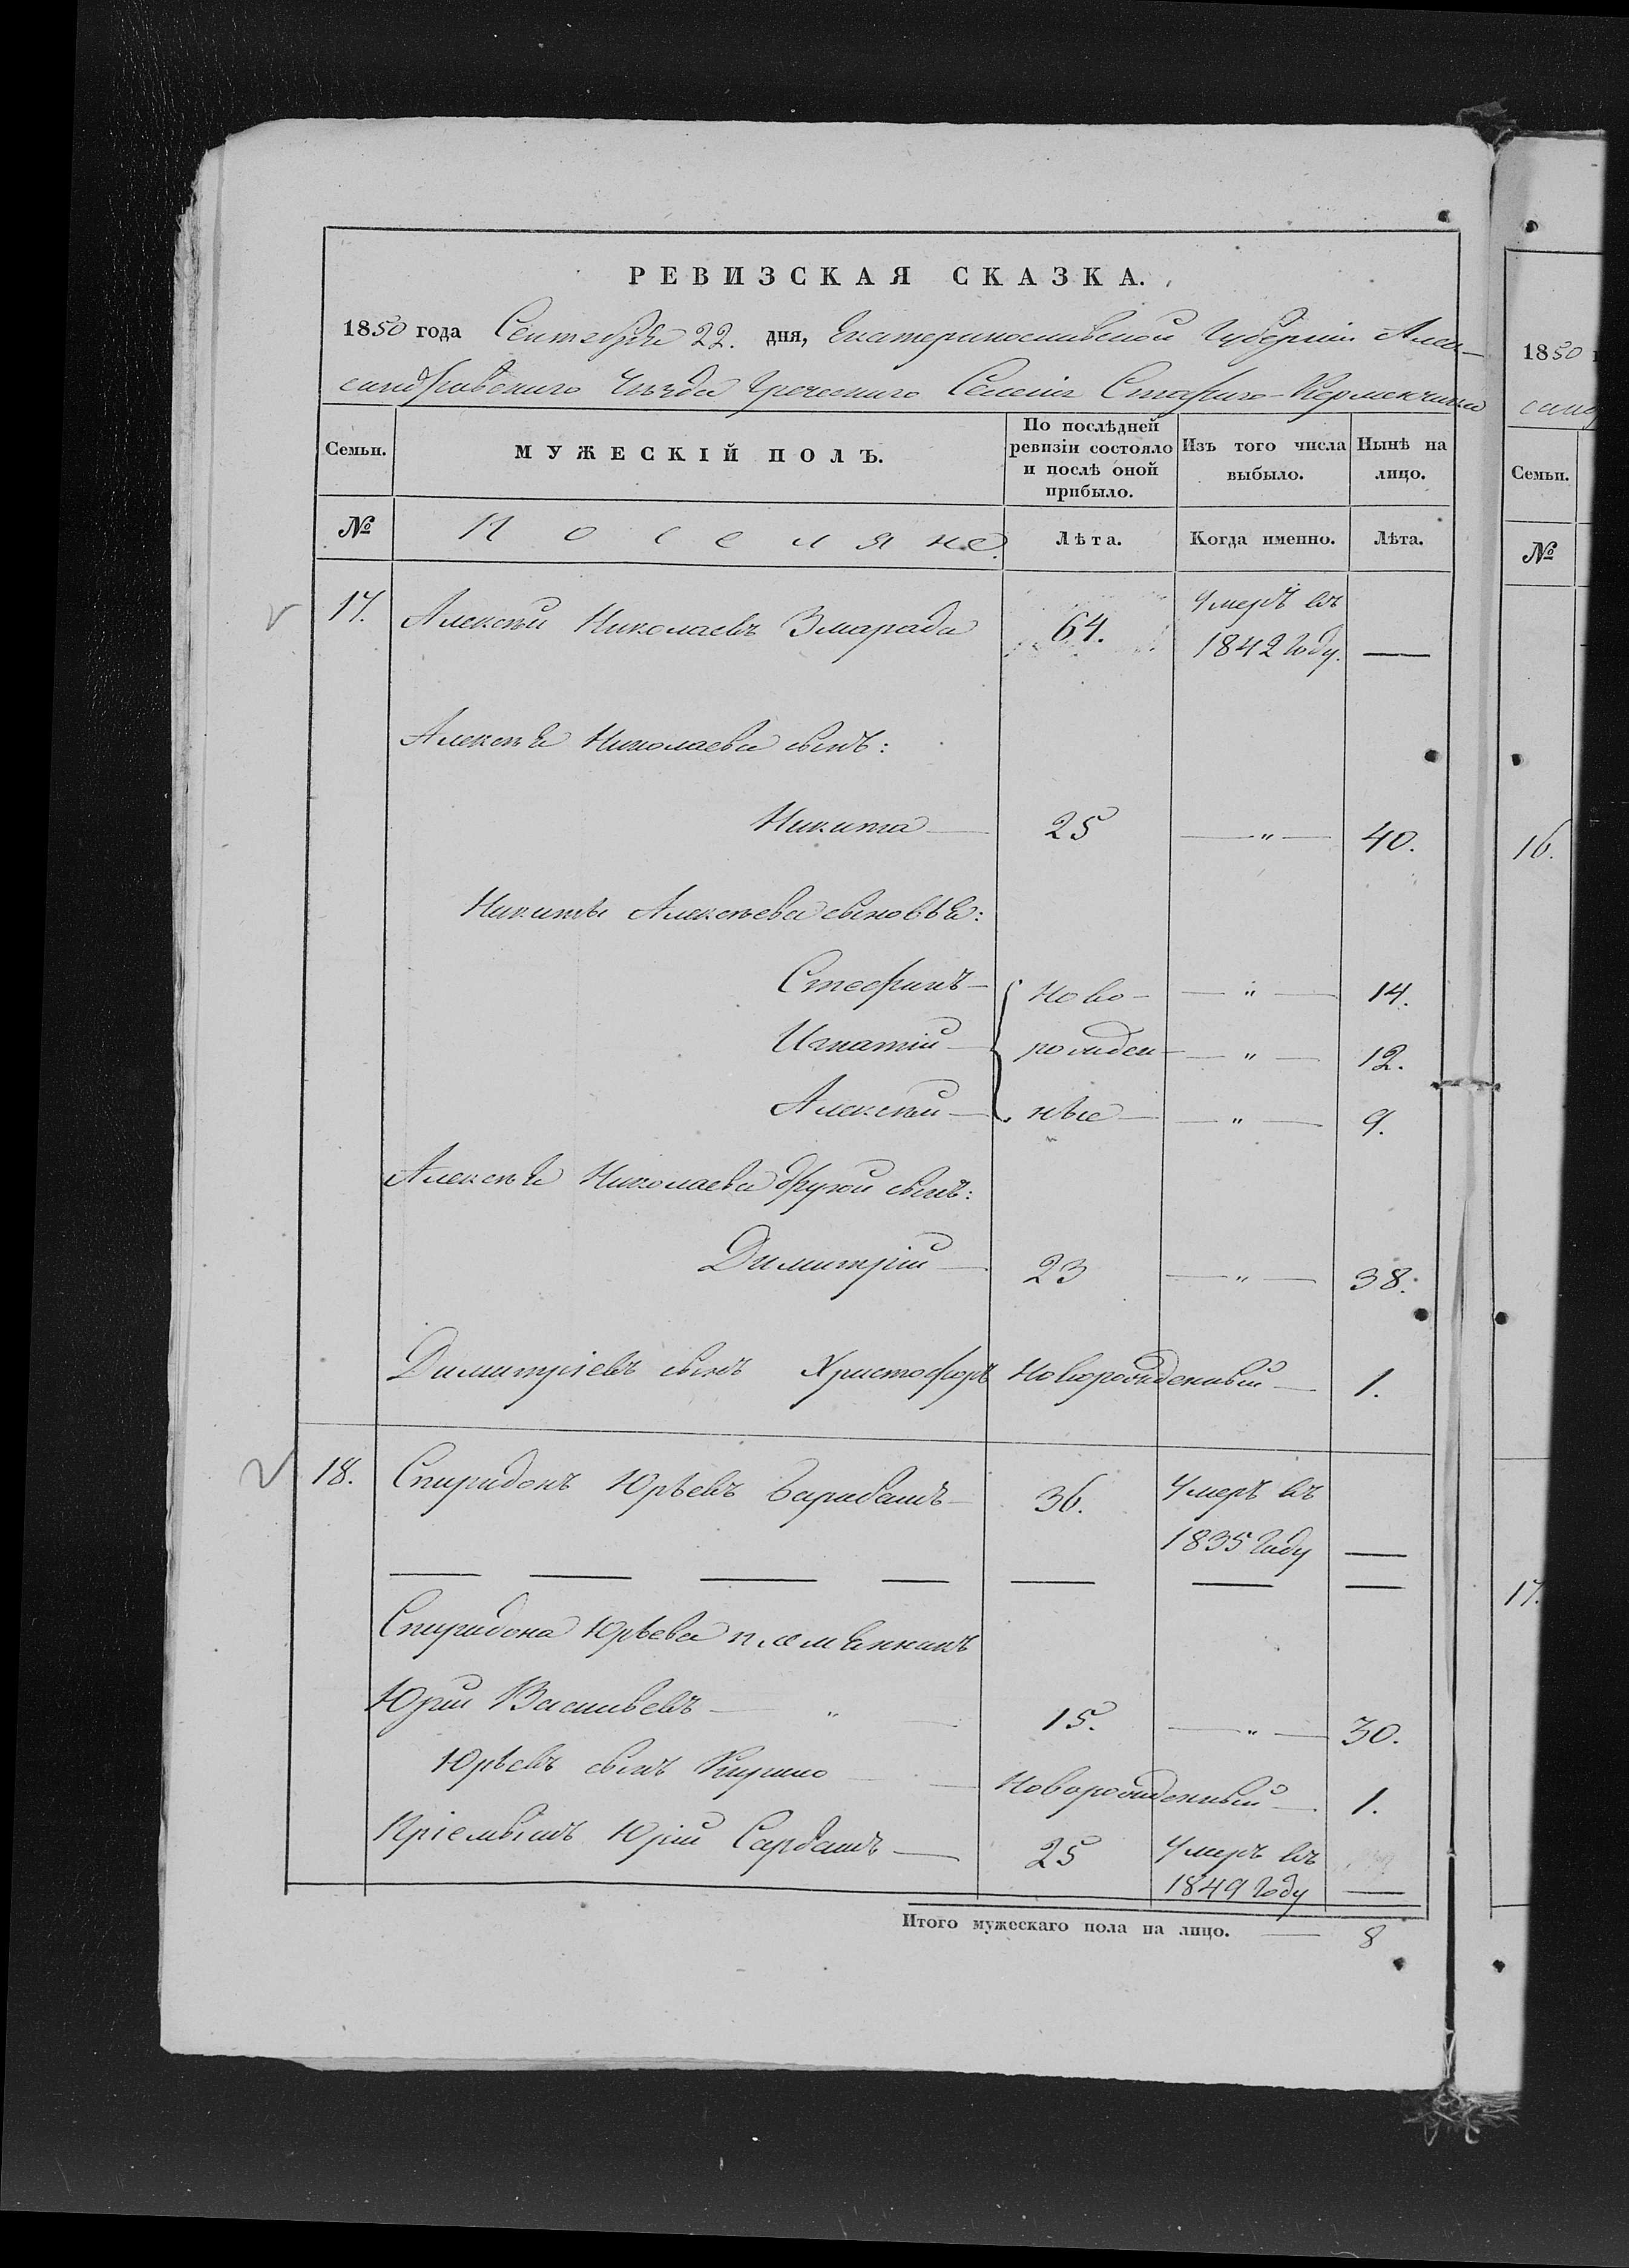 РЕВИЗСКАЯ СКАЗКА.
1850 года Сентября 22. дня, Екатеринославской Губернiи Алек-
сандровскаго Уѣзда Греческаго Селенiя Стараго-Керменчика
Семьи.
МУЖЕСКІЙ ПОЛЪ.
По послѣдней
ревизіи состояло
и послѣ оной
прибыло.
Изъ того числа
выбыло.
Нынѣ на
лицо.
№
Поселяне.
Лѣта.
Когда именно.
Лѣта.
17. Алексѣй Николаевъ Змарада 64. Умеръ въ
1842 году. —
Алексѣя Николаева сынъ:
Никита — 25 — " — 40.
Никиты Алексѣева сыновья:
Стефанъ — Ново- — " — 14.
Игнатій — рожден- — " — 12.
Алексѣй — ные — " — 9.
Алексѣя Николаева другой сынъ:
Димитрій — 23 — " — 38.
Димитріевъ сынъ Христофоръ Новорожденный — 1.
18. Спиридонъ Юрьевъ Барабашъ — 36. Умеръ въ
1835 году —
Спиридона Юрьева племянникъ
Юрій Васильевъ — " — 15. — " — 30.
Юрьевъ сынъ Кирико — Новорожденный — 1.
Пріемышъ Юрій Сарбашъ — 25 Умеръ въ
1849 году —
Итого мужескаго пола на лицо. — 8
1850
Семьи.
№
16.
17.